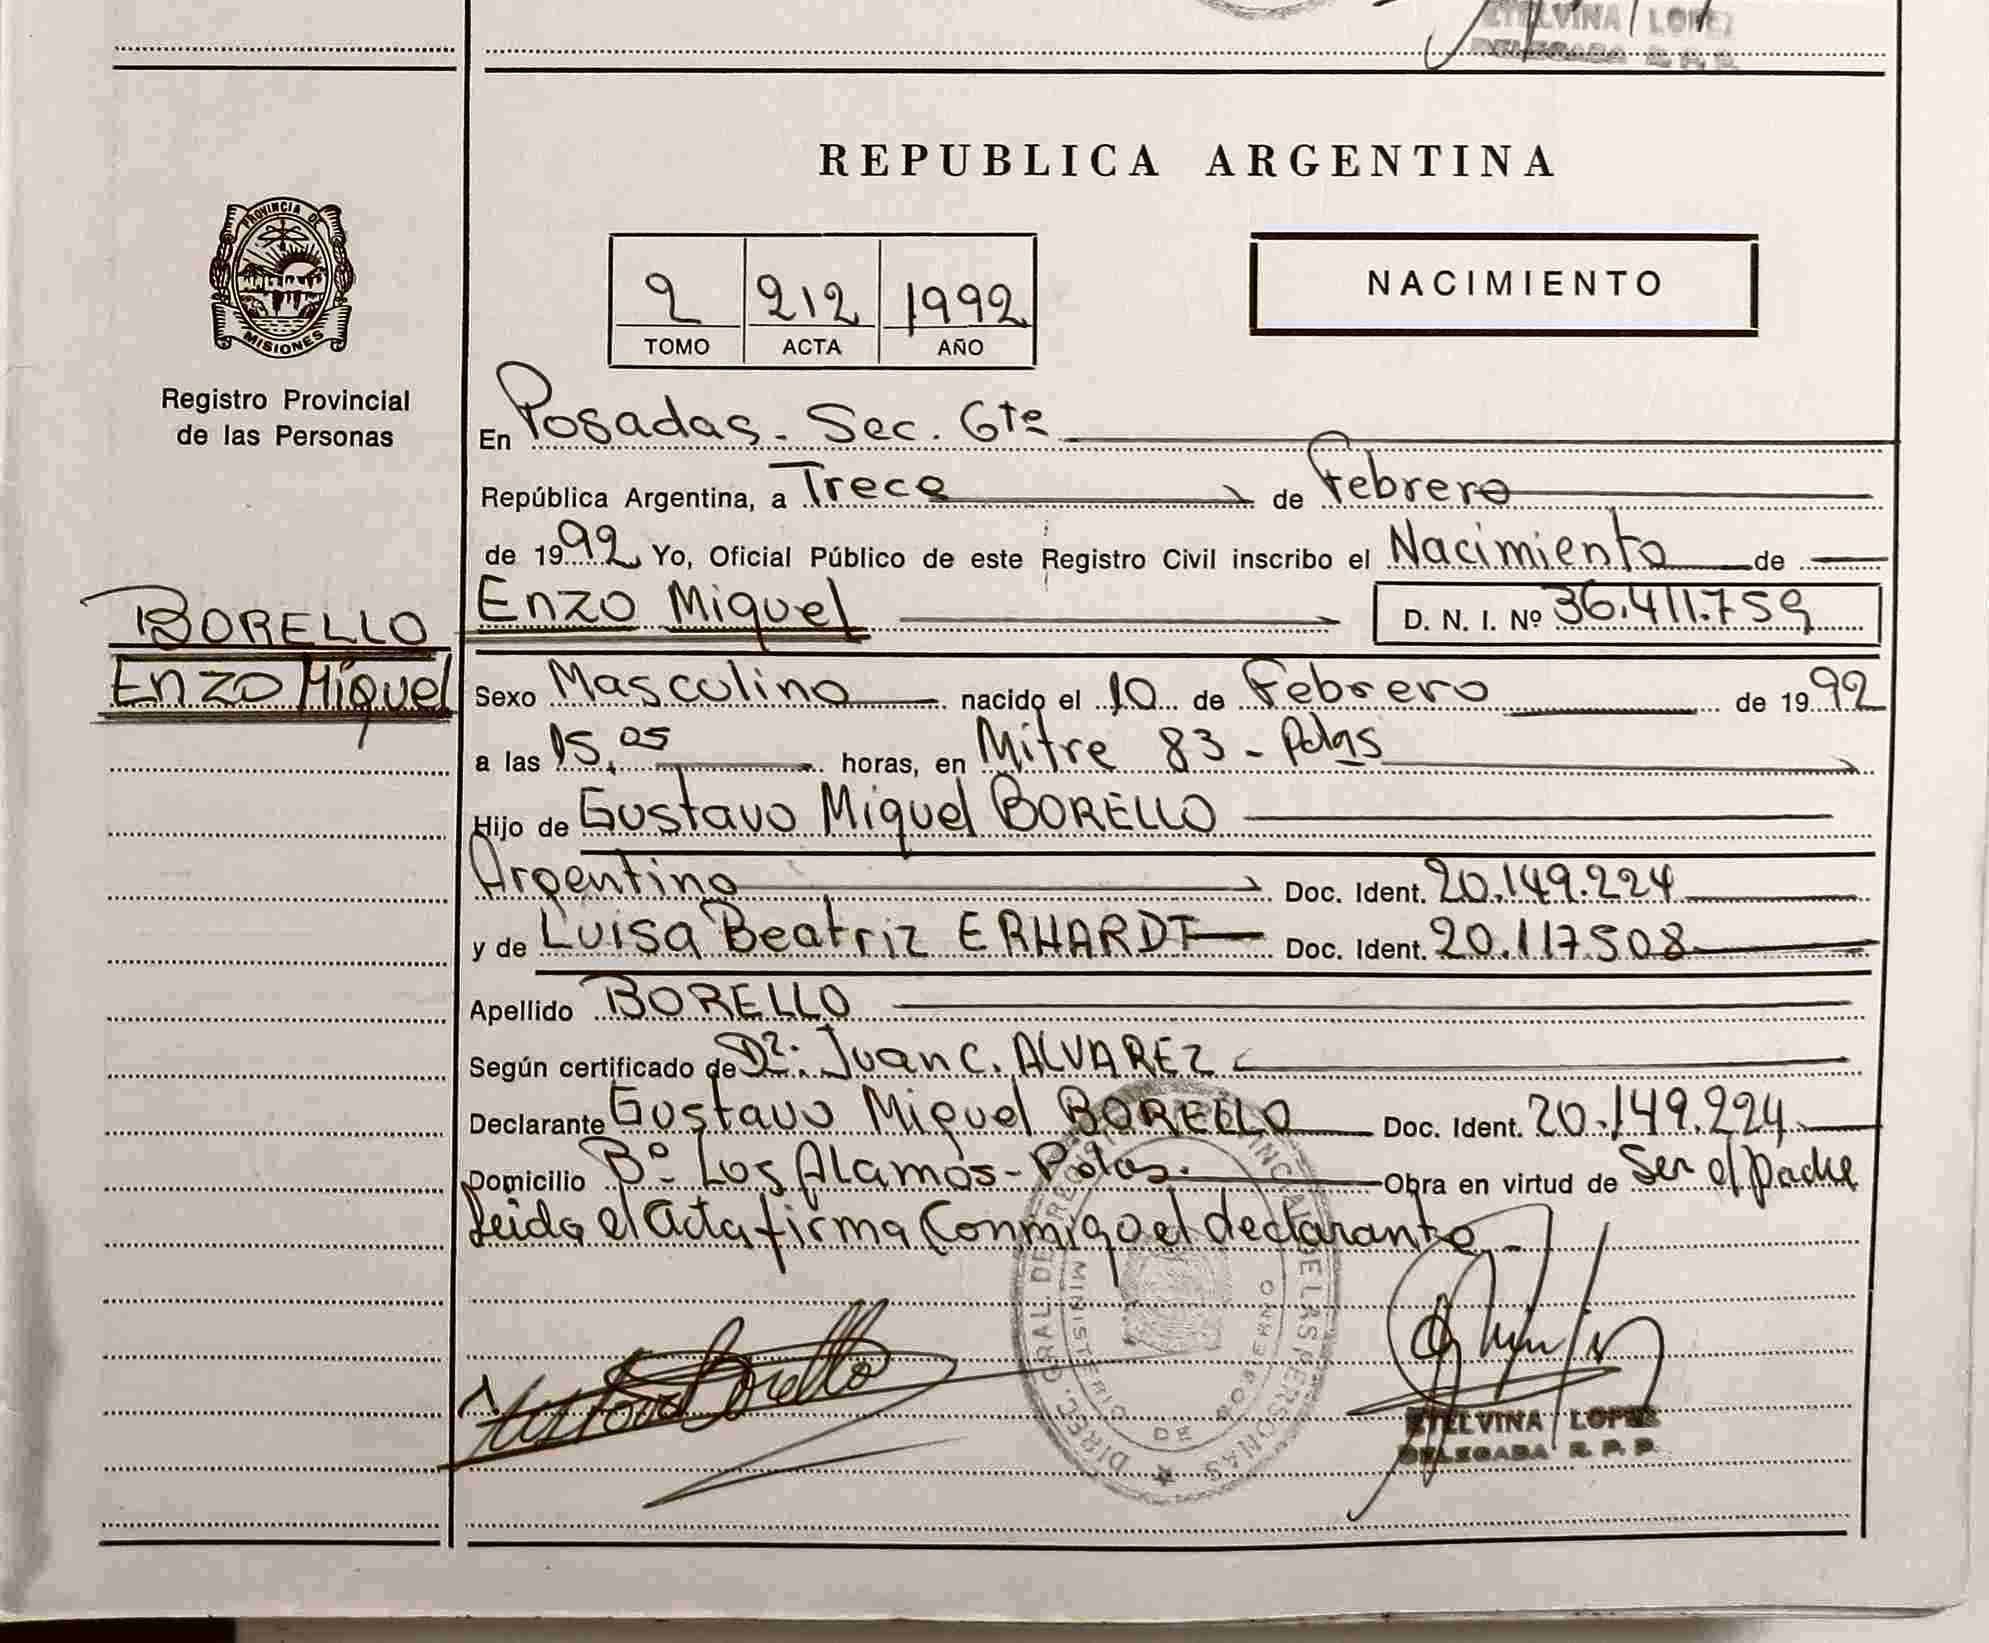 ETELVINA LOPEZ
DELEGADA R. P. P.
REPUBLICA ARGENTINA
PROVINCIA DE
MISIONES
Registro Provincial
de las Personas
2 212 1992
TOMO ACTA AÑO
NACIMIENTO
En Posadas. Sec. 6ta
República Argentina, a Trece de Febrero
de 1992 Yo, Oficial Público de este Registro Civil inscribo el Nacimiento de
BORELLO
Enzo Miguel
Enzo Miguel D. N. I. Nº 36.411.759
Sexo Masculino nacido el 10 de Febrero de 1992
a las 15,05 horas, en Mitre 83 - Pdas
Hijo de Gustavo Miguel BORELLO
Argentino Doc. Ident. 20.149.224
y de Luisa Beatriz ERHARDT Doc. Ident. 20.117.508
Apellido BORELLO
Según certificado de Dr. Juan C. ALVAREZ
Declarante Gustavo Miguel BORELLO Doc. Ident. 20.149.224
Domicilio Bº Los Alamos - Pdas. Obra en virtud de Ser el padre
Leida el Acta firma Conmigo el declarante.-
DIREC. GRAL. DEL REG. PROVINCIAL DE LAS PERSONAS
MINISTERIO DE GOBIERNO
ETELVINA LOPEZ
DELEGADA R. P. P.